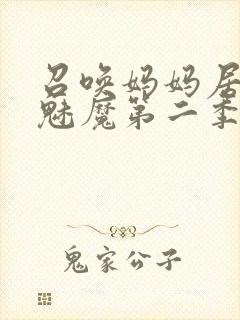 召唤妈妈居
魅魔第二季
鬼家公子